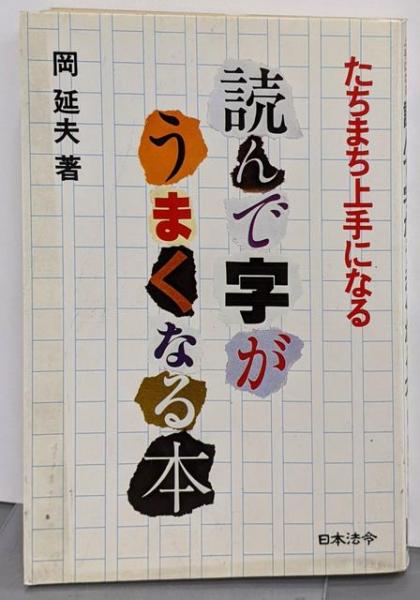 たちまち上手になる
読んで字が
うまくなる本
岡 延夫 著
日本法令